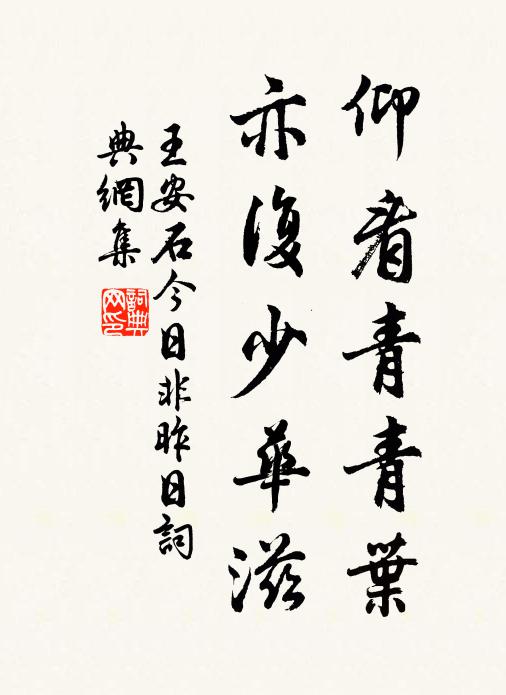 仰看青青葉
亦復少華滋
王安石今日非昨日詞
典網集
詞典
网印